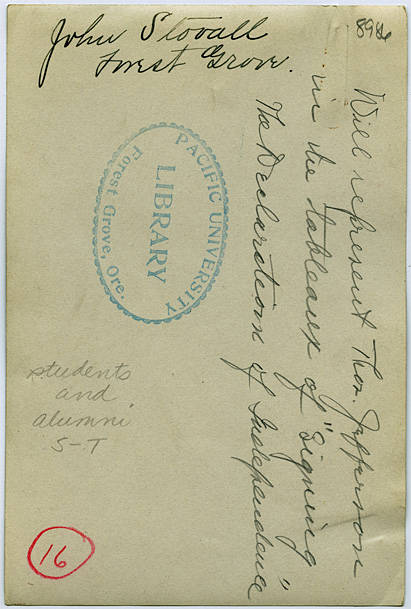 John Stovall
Forest Grove.
8946
Will represent Thos. Jefferson
in the tableaux of "Signing
The Declaration of Independence"
PACIFIC UNIVERSITY
LIBRARY
Forest Grove, Ore.
students
and
alumni
S-T
16